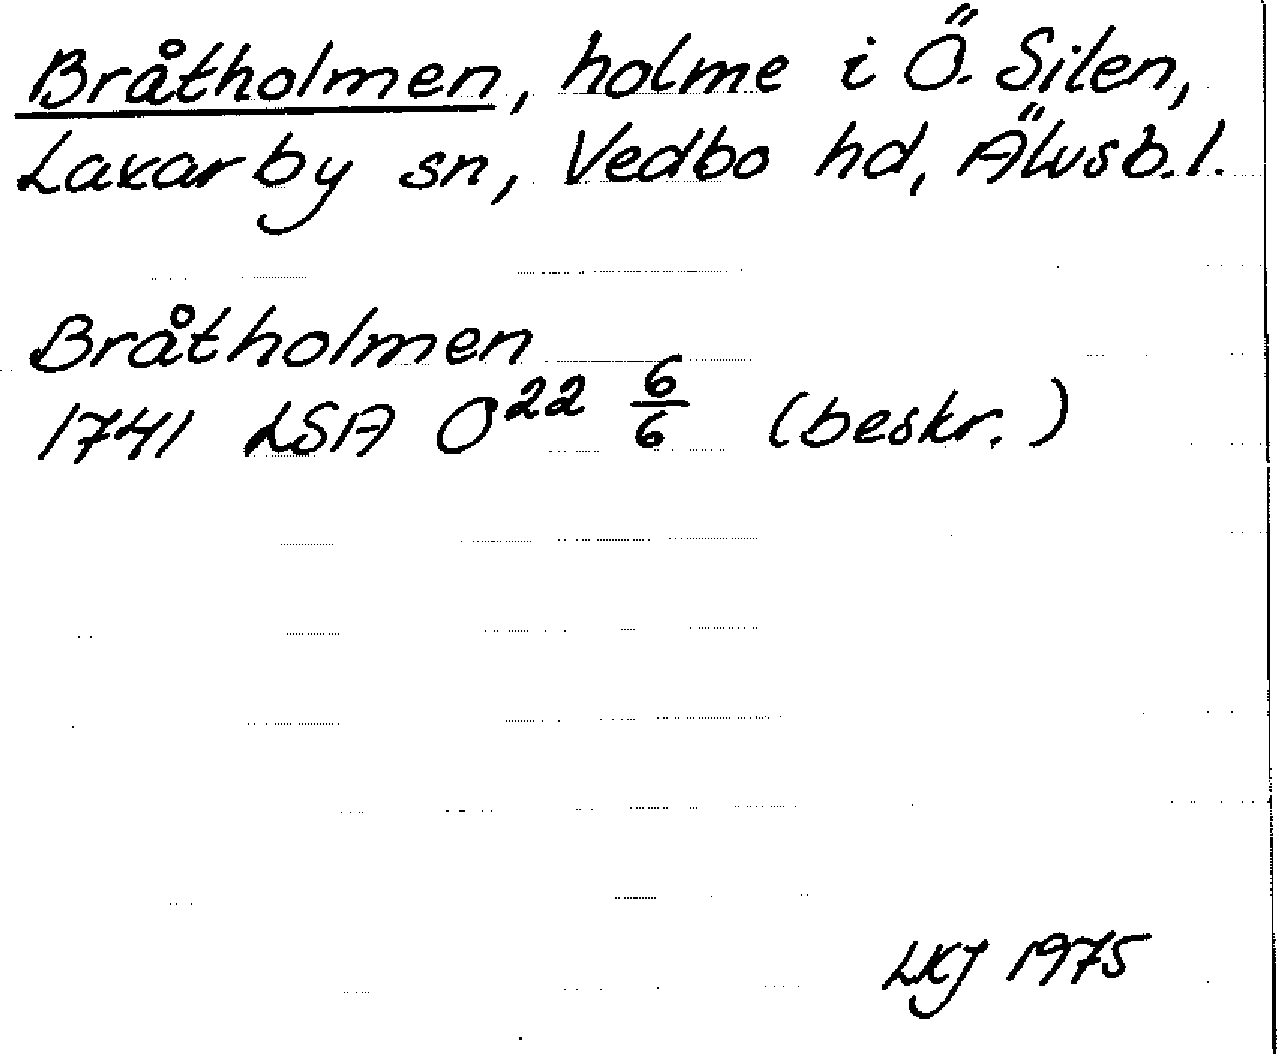 Bråtholmen, holme i Ö. Silen,
Laxarby sn, Vedbo hd, Älvsb.l.
Bråtholmen
1741 LSA O²² 6/6 (beskr.)
LKJ 1975